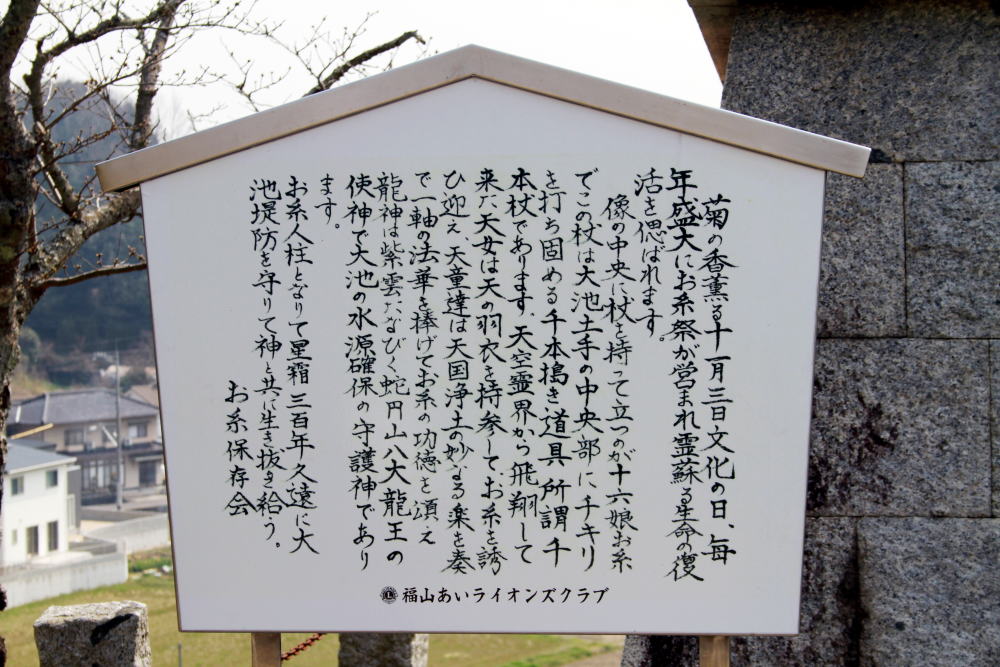 菊の香薫る十一月三日文化の日、毎
年盛大にお糸祭が営まれ霊蘇る生命の復
活を偲ばれます。
像の中央に杖を持って立つのが十六娘お糸
でこの杖は大池土手の中央部にチキリ
を打ち固める千本搗き道具所謂千
本杖であります。天空霊界から飛翔して
来た天女は天の羽衣を持参して、お糸を誘
ひ迎え天童達は天国浄土の妙なる楽を奏
で一軸の法華を捧げてお糸の功徳を頌え
龍神は紫雲たなびく蛇円山八大龍王の
使神で大池の水源確保の守護神であり
ます。
お糸人柱となりて星霜三百年久遠に大
池堤防を守りて神と共に生き抜き給う。
お糸保存会
福山あいライオンズクラブ